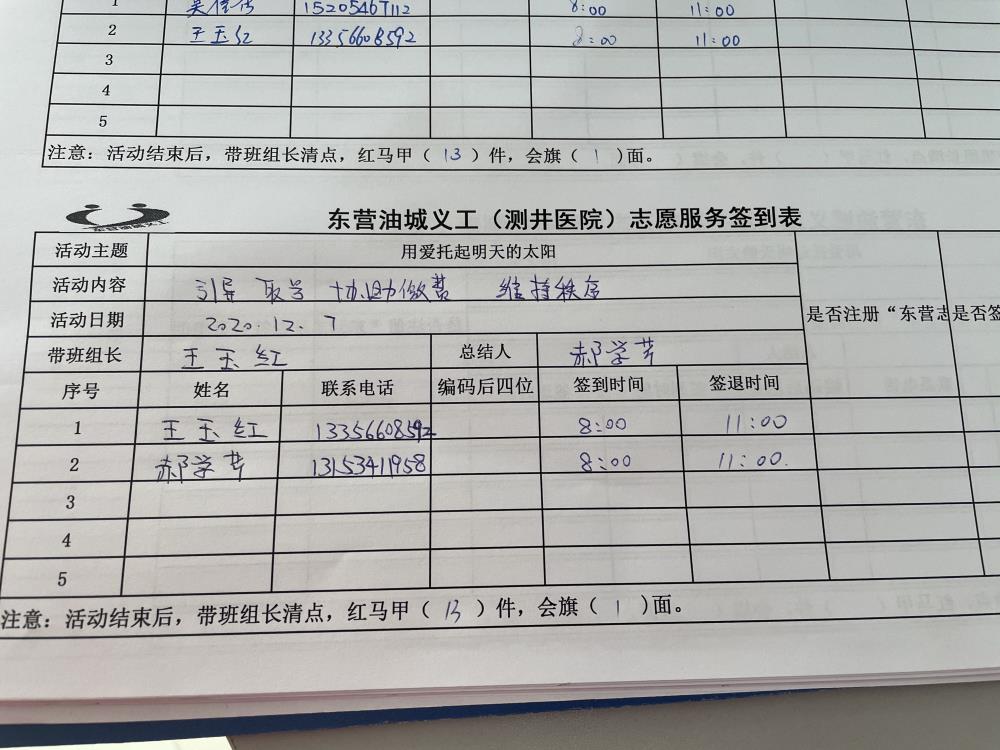 1 15205467112 8:00 11:00
2 王玉红 13356608592 8:00 11:00
3
4
5
注意：活动结束后，带班组长清点，红马甲（ 13 ）件，会旗（ 1 ）面。
东营油城义工（测井医院）志愿服务签到表
活动主题 用爱托起明天的太阳
活动内容 引导 取号 协助缴费 维持秩序
活动日期 2020.12.7 是否注册“东营志 是否签
带班组长 王玉红 总结人 郝学芹
序号 姓名 联系电话 编码后四位 签到时间 签退时间
1 王玉红 13356608592 8:00 11:00
2 郝学芹 13153411958 8:00 11:00.
3
4
5
注意：活动结束后，带班组长清点，红马甲（ 13 ）件，会旗（ 1 ）面。